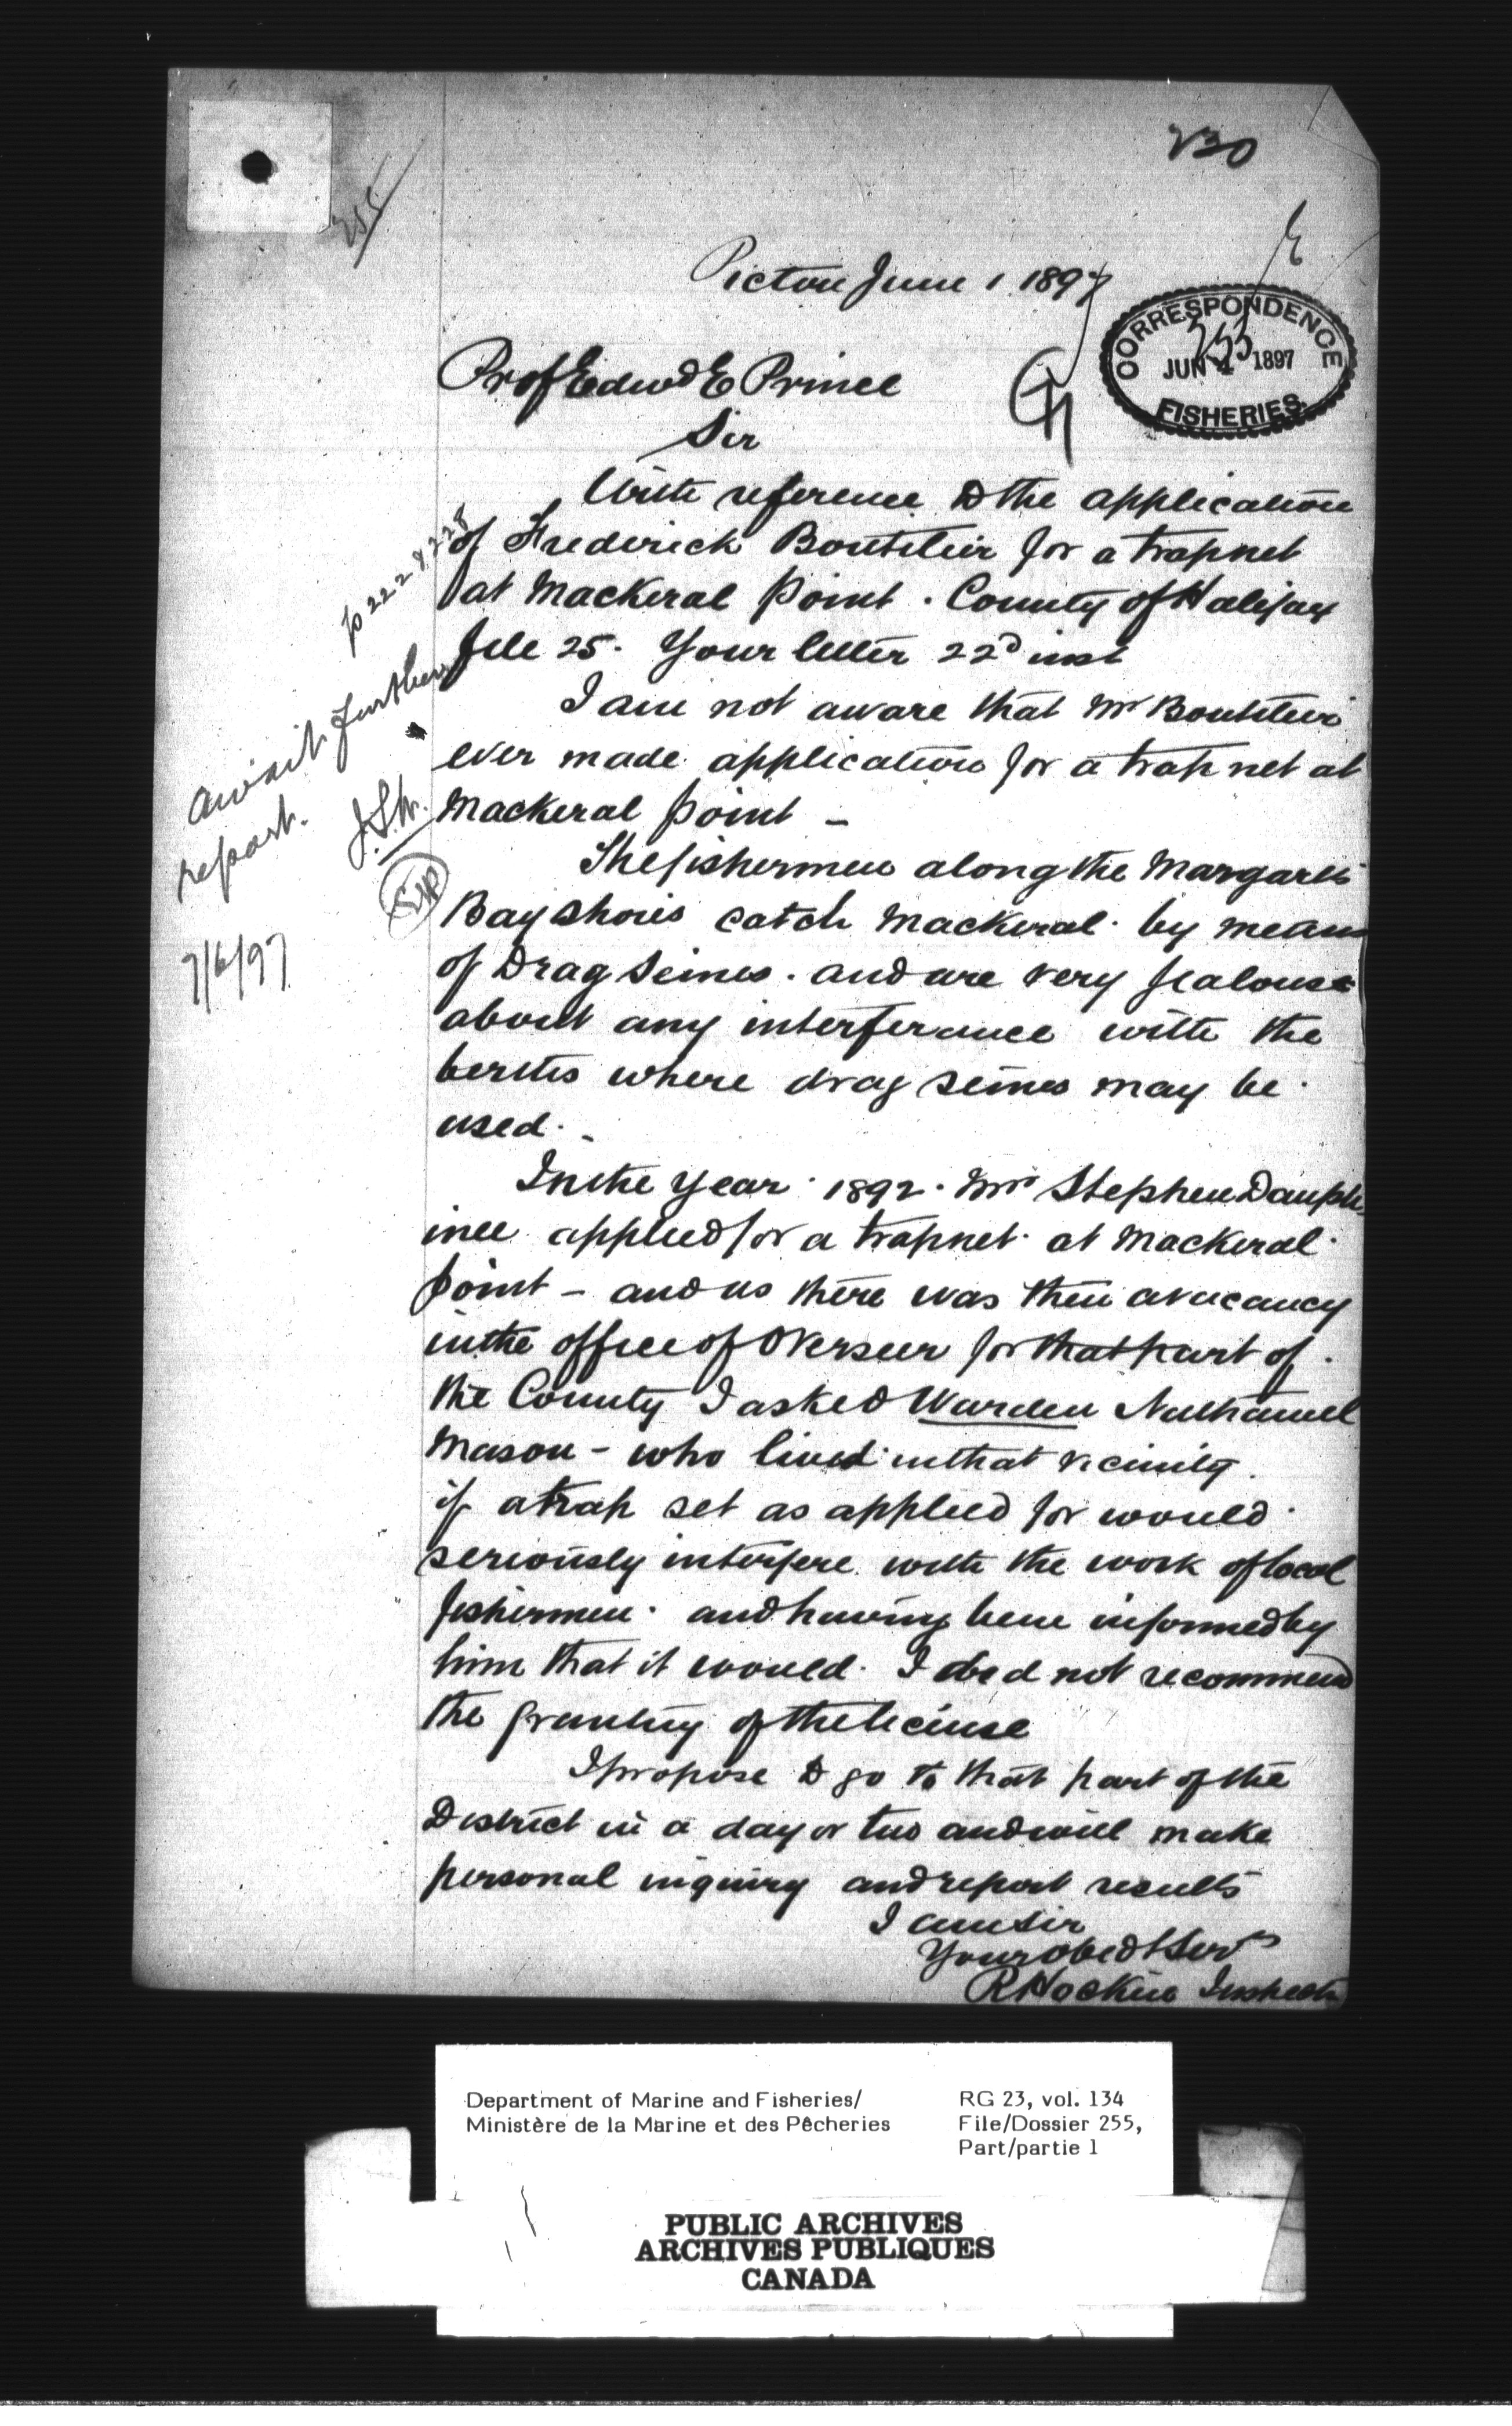 230
255
Pictou June 1 1897
CORRESPONDENCE
255
JUN 4 1897
FISHERIES
Prof Edwd E Prince
Sir
With reference to the application
of Frederick Boutilier for a trapnet
at Mackeral Point. County of Halifax
file 25. Your letter 22d inst
I am not aware that Mr Boutilier
ever made application for a trap net at
Mackeral point -
The fishermen along the Margarets
Bay shores catch Mackeral by means
of Drag Seines. and are very jealouse
about any interferance with the
berths where drag seines may be
used. -
In the year 1892. Mr Stephen Dauph
inee applied for a trapnet at Mackeral
point - and as there was then a vacancy
in the office of Overseer for that part of
the County I asked Warden Nathaniel
Mason - who lived in that vicinity
if a trap set as applied for would
seriously interfere with the work of local
fishermen and having been informed by
him that it would. I did not recommend
the granting of the license
I propose to go to that part of the
District in a day or two and will make
personal inquiry and report results
I am Sir
Your obedt Servt
R Hockin Inspector
p 222 & 228
await further
report.
7/6/97
Department of Marine and Fisheries/
Ministère de la Marine et des Pêcheries
RG 23, vol. 134
File/Dossier 255,
Part/partie 1
PUBLIC ARCHIVES
ARCHIVES PUBLIQUES
CANADA